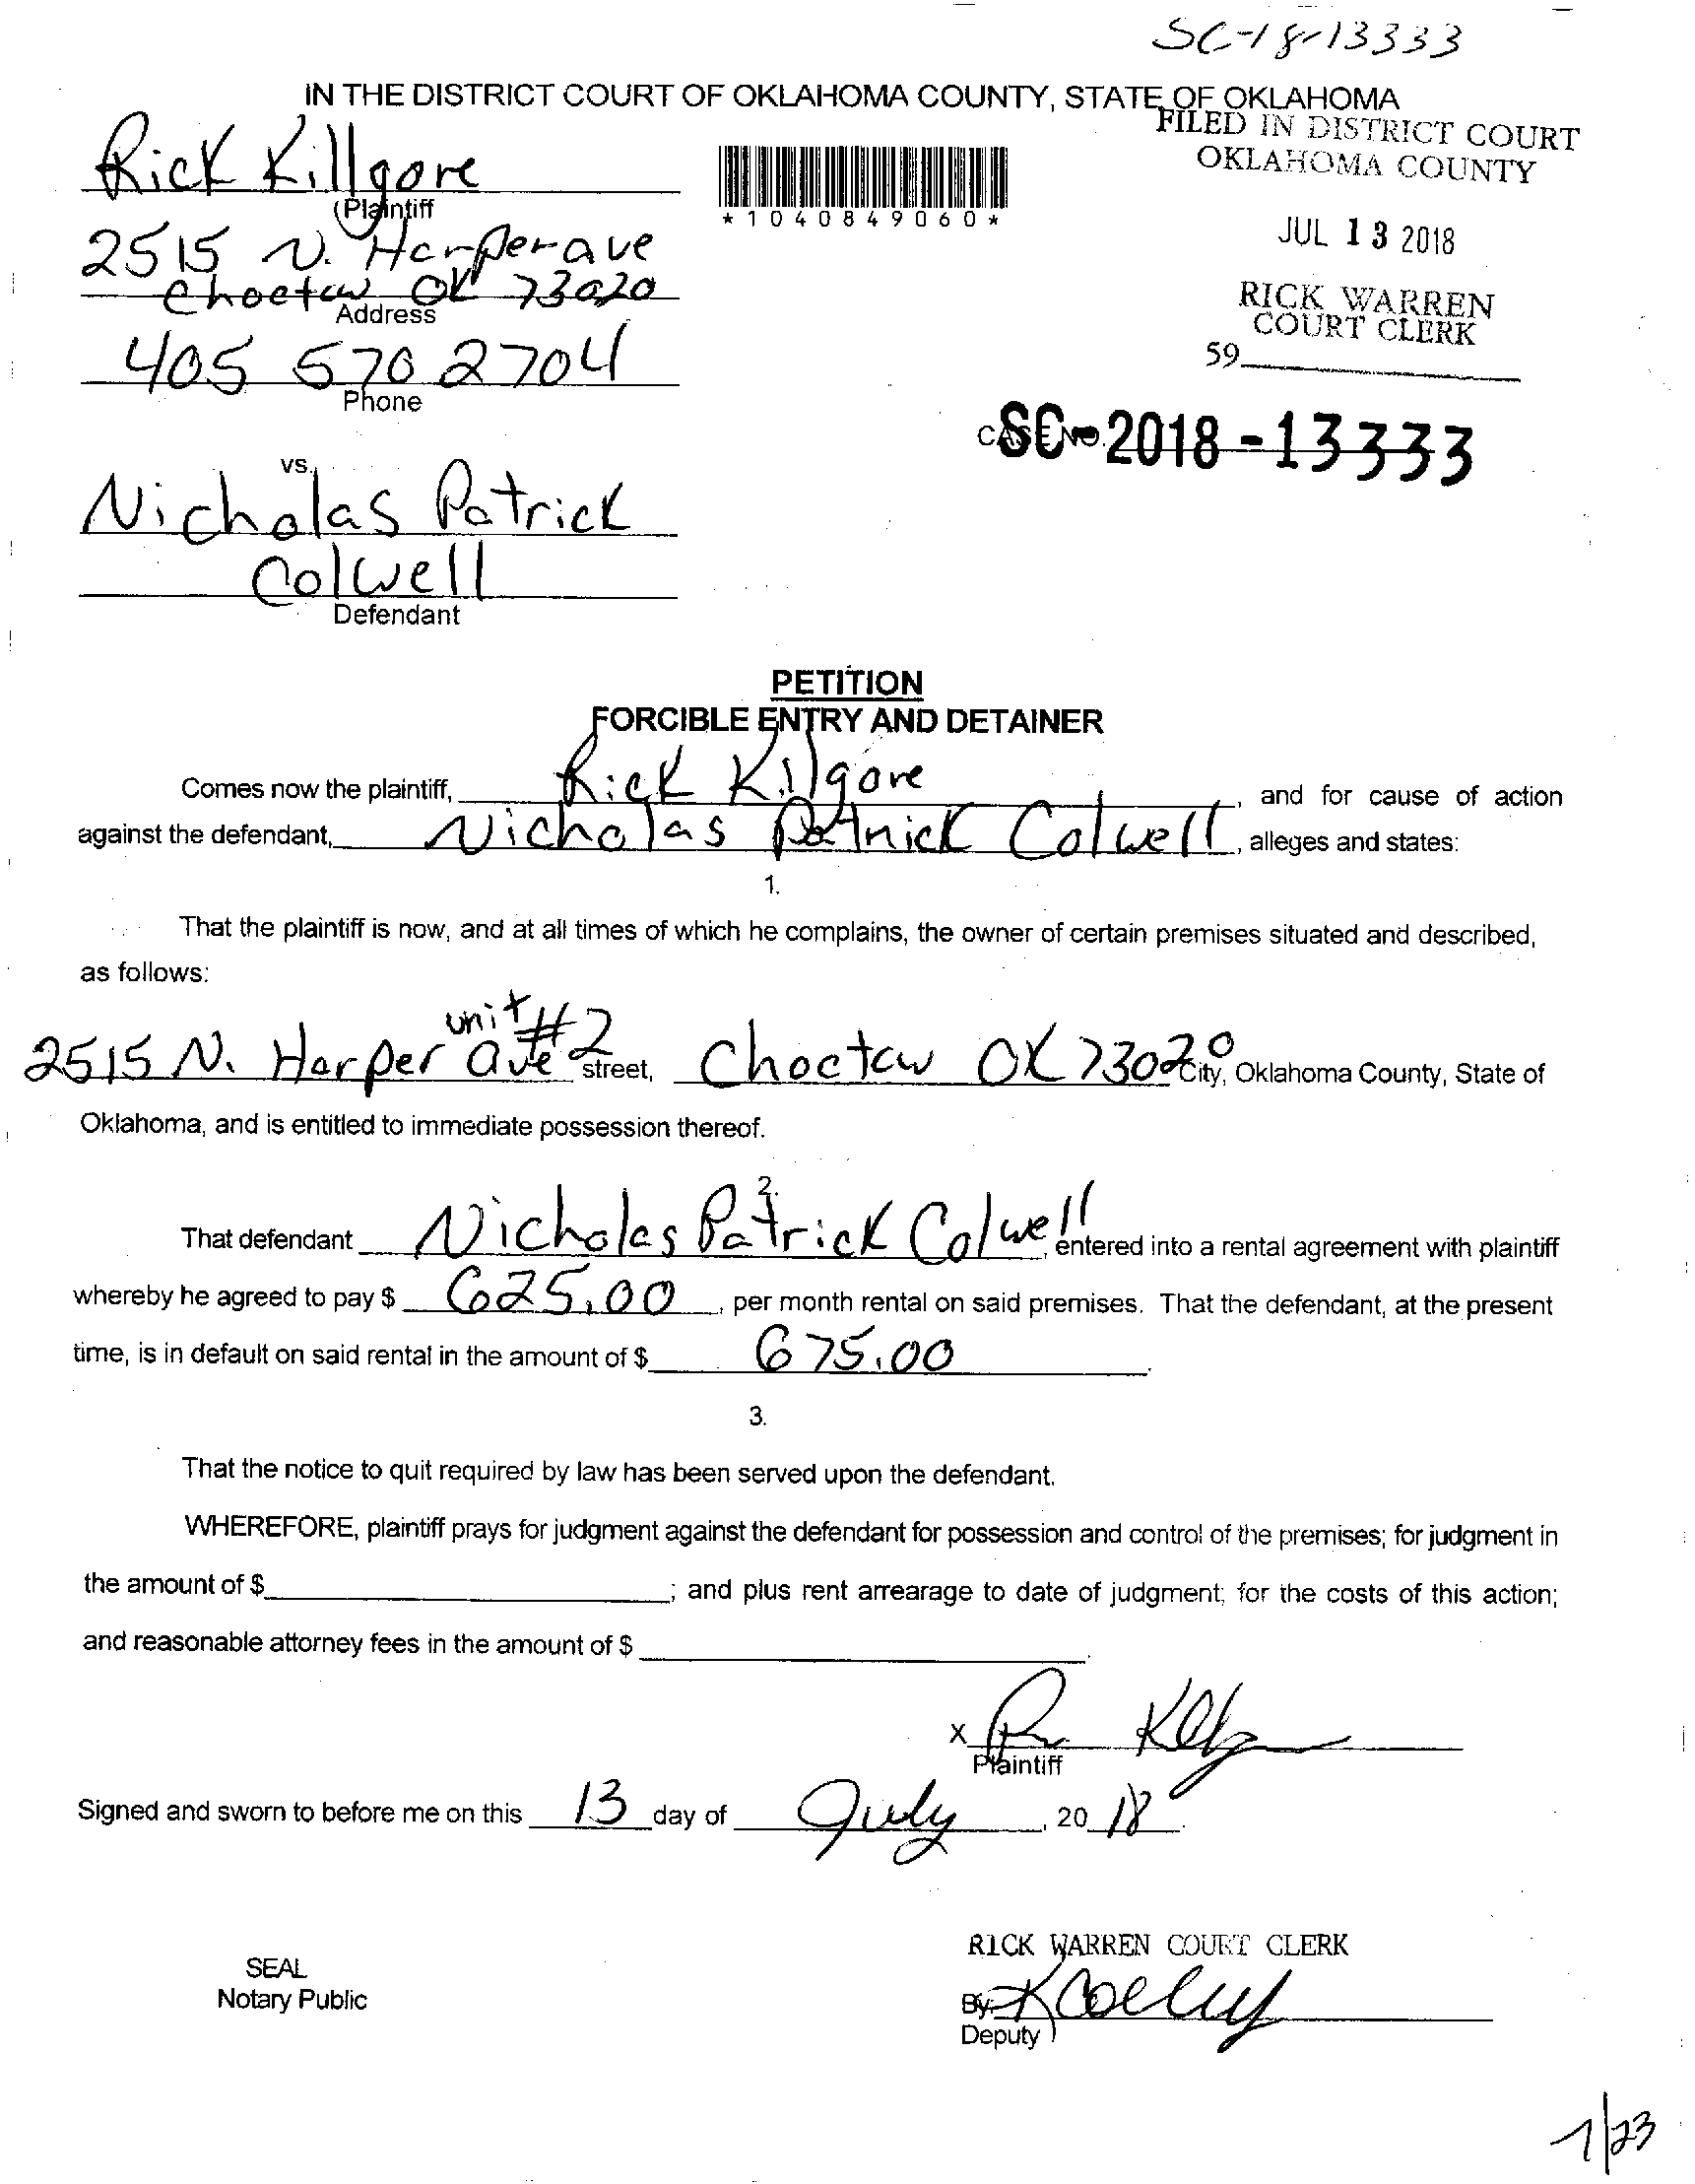 SC-18-13333
IN THE DISTRICT COURT OF OKLAHOMA COUNTY, STATE OF OKLAHOMA
FILED IN DISTRICT COURT
OKLAHOMA COUNTY
Rick Killgore
(Plaintiff
*1040849060*
JUL 13 2018
2515 N. Harper ave
Choctaw OK 73020
Address
RICK WARREN
COURT CLERK
59
405 570 2704
Phone
CASE NO.
SC-2018-13333
vs.
Nicholas Patrick
Colwell
Defendant
PETITION
FORCIBLE ENTRY AND DETAINER
Comes now the plaintiff, Rick Killgore, and for cause of action
against the defendant, Nicholas Patrick Colwell, alleges and states:
1.
That the plaintiff is now, and at all times of which he complains, the owner of certain premises situated and described,
as follows:
2515 N. Harper ave unit #2 street, Choctaw OK 73020 City, Oklahoma County, State of
Oklahoma, and is entitled to immediate possession thereof.
2.
That defendant Nicholas Patrick Colwell, entered into a rental agreement with plaintiff
whereby he agreed to pay $ 625.00, per month rental on said premises. That the defendant, at the present
time, is in default on said rental in the amount of $ 675.00.
3.
That the notice to quit required by law has been served upon the defendant.
WHEREFORE, plaintiff prays for judgment against the defendant for possession and control of the premises; for judgment in
the amount of $ ; and plus rent arrearage to date of judgment; for the costs of this action;
and reasonable attorney fees in the amount of $ .
X
Plaintiff
Signed and sworn to before me on this 13 day of July, 20 18.
RICK WARREN COURT CLERK
SEAL
Notary Public
By:
Deputy
7/23